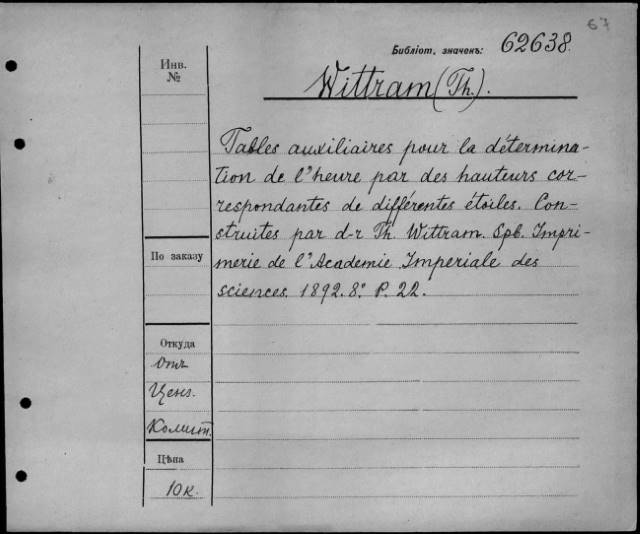 67
Библіот. значекъ: 62638.
Инв.
№
Wittram (Th.).
Tables auxiliaires pour la détermina-
tion de l'heure par des hauteurs cor-
respondantes de différentes étoiles. Con-
struites par d-r Th. Wittram. Spb. Impri-
merie de l'Académie Imperiale des
sciences. 1892. 8º. P. 22.
По заказу
Откуда
отъ
Ценз.
Комит.
Цѣна
10 к.